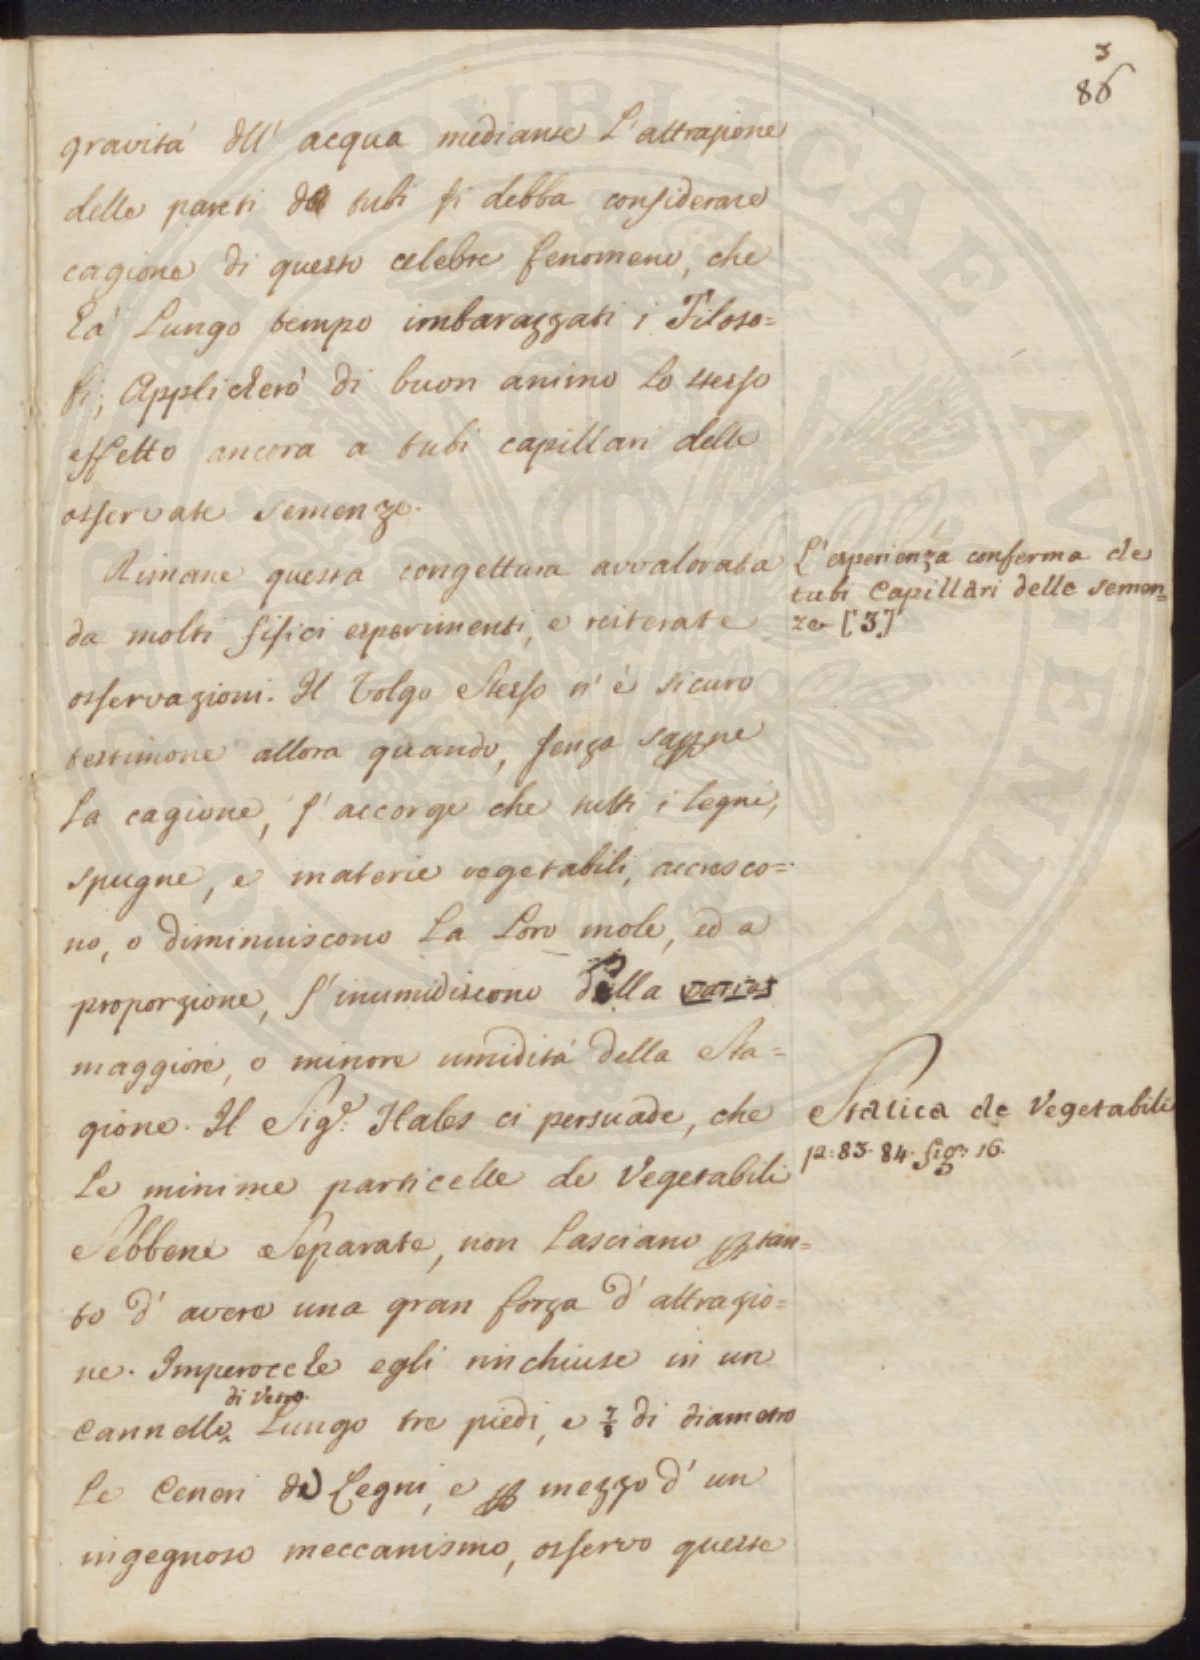 3
86
gravitá dell' acqua mediante l'attrazione
delle pareti de tubi si debba considerare
cagione di questo celebre fenomeno, che
há lungo tempo imbarazzati i Filoso=
fi; Applicheró di buon animo lo stesso
effetto ancora a tubi capillari delle
osservate semenze.
Rimane questa congettura avvalorata
da molti fisici esperimenti, e reiterate
osservazioni. Il Volgo stesso n' è sicuro
testimone allora quando, senza saperne
la cagione, s' accorge che tutti i legni,
spugne, e materie vegetabili, accresco=
no, o diminuiscono la loro mole, ed a
proporzione, s' inumidiscono dalla
maggiore, o minore umiditá della Sta=
gione. Il Sig.e Hales ci persuade, che
le minime particelle de Vegetabili
Sebbene Separate, non lasciano pertan=
to d' avere una gran forza d' attrazio=
ne. Imperocche egli rinchiuse in un
di Vetro
cannello lungo tre piedi, e 7/8 di diametro
le Ceneri de Legni, e per mezzo d' un
ingegnoso meccanismo, osservo queste
L'esperienza conferma de
tubi Capillari delle semen=
ze [3]
Statica de Vegetabili
p: 83. 84. fig: 16.
PROSPERITATI PUBLICAE AUGENDAE